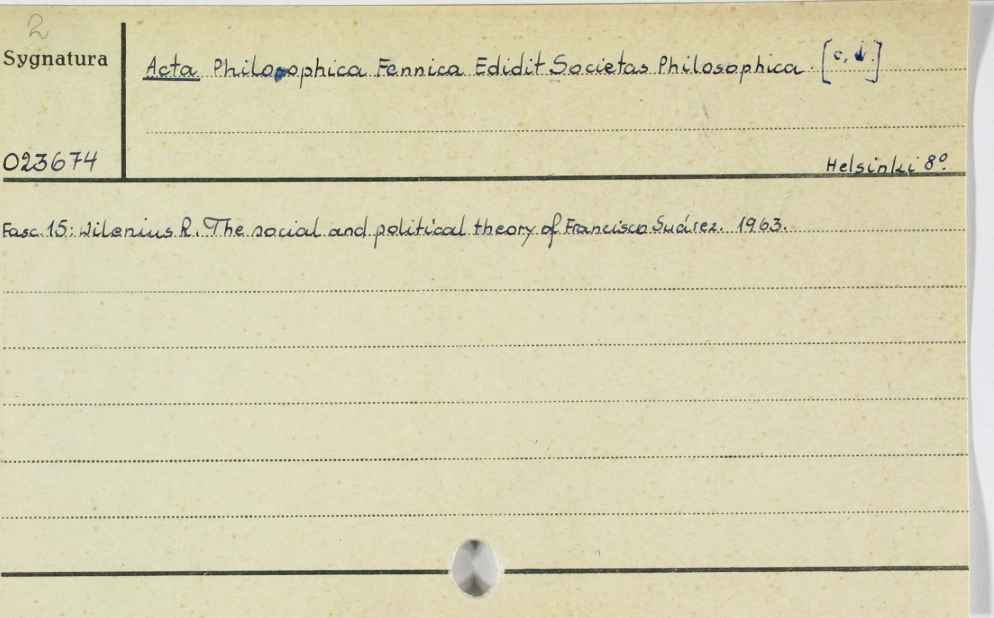 2
Sygnatura
Acta Philosophica Fennica Edidit Societas Philosophica. [c.d.]
023674
Helsinki 8º.
Fasc. 15: Wilenius R. The social and political theory of Francisco Suárez. 1963.